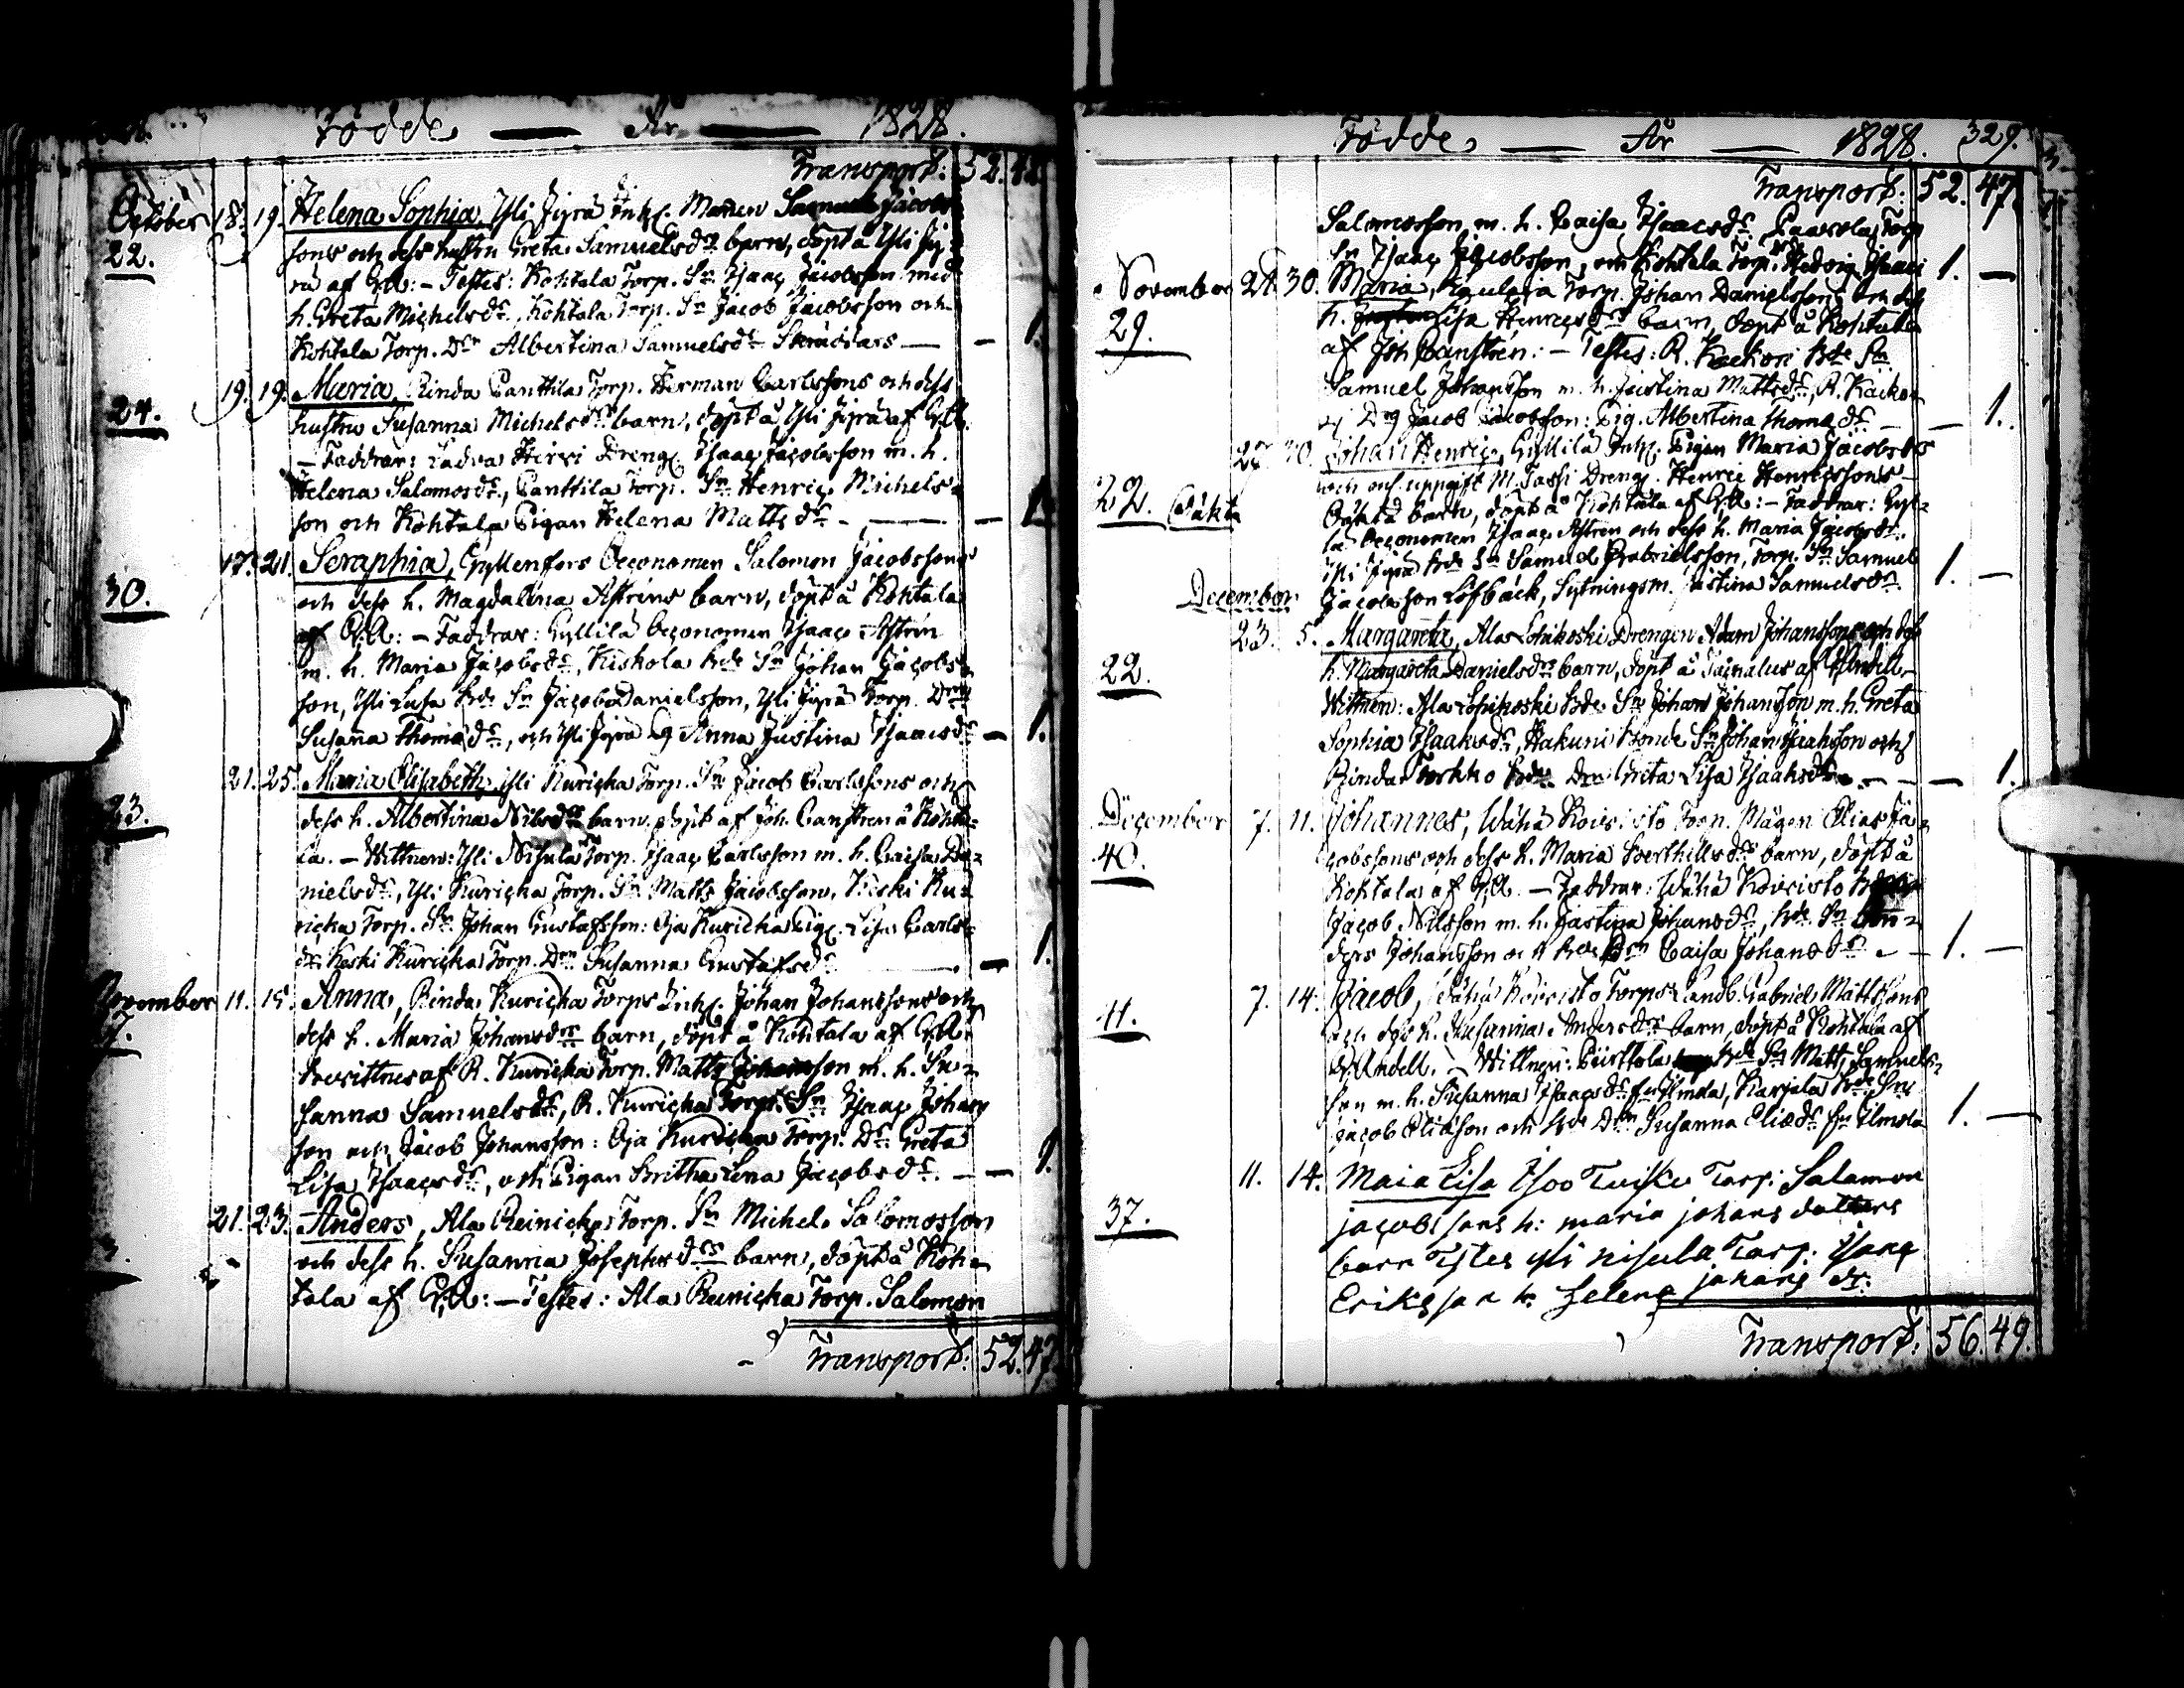 Födde — År — 1828.
Transport: 52. 42
October 18. 19. Helena Sophia, Yli Jyrä Inh. Mannen Samuels Jacobs-
22. sons och dess hustru Greta Samuelsdrs barn, döpt å Yli Jy-
rä af G.A: – Testes: Kohtala Torp. Sn Isaac Jacobsson med
h. Greta Michelsdr, Kohtala Torp. Sn Jacob Jacobsson och
Kohtala Torp. Drn Albertina Samuelsdr — — 1.
19. 19. Maria, Rinda Panttila Torp. Herman Carlssons och dess
24. hustru Susanna Michelsdrs barn, döpt å Yli Jyrä af G.A.
– Faddrar: Hirvi Dreng. Isaac Jacobsson m. h.
Helena Salomosdr, Panttila Torp. Sn Henric Michels-
son och Kohtala Pigan Helena Mattsdr — — 1.
17. 21. Seraphia, Gyllenfors Oeconomen Salomon Jacobssons
30. och dess h. Magdalena Astréns barn, döpt å Kohtala
af G.A: – Faddrar: Gyllilä Oeconomen Isaac Astrén
m. h. Maria Jacobsdr, Kiskola bde Sn Johan Jacobs-
son, Yli Lusa bde Sn Jacob Danielsson, Yli Jyrä Torp. Drn
Susanna Thomädr, och Yli Jyrä Anna Justina Isaacsdr — 1.
21. 25. Maria Elisabeth, Yli Kuricka Torp. Sn Jacob Carlssons och
23. dess h. Albertina Nilsdrs barn, döpt af Joh. Canstren å Kohta-
la. – Wittnen: Yli Nisula Torp. Isaac Carlsson m. h. Caisa Da-
nielsdr, Yli Kuricka Torp. Sn Matts Jacobsson, Keski Ku-
ricka Torp. Sn Johan Gustafsson: Oja Kuricka Pig. Lisa Carls-
dr Keski Kuricka Torp. Drn Susanna Gustafsdr — 1.
November 11. 15. Anna, Rinda Kuricka Torps Inh. Johan Johanssons och
7. dess h. Maria Johansdrs barn, döpt å Kohtala af G.A.
bevittnes af R. Kuricka Torp. Matts Johansson m. h. Su-
sanna Samuelsdr, R. Kuricka Torps Sn Isaac Johans
son och Jacob Johansson: Oja Kuricka Torp. Dr Greta
Lisa Isaacsdr, och Pigan Britha Lena Jacobsdr. — — 1.
21. 23. Anders, Ala Reinicka Torp. Sn Michel Salomosson
och dess h. Susanna Josephsdrs barn, döpt å Koh-
tala af G.A: – Testes: Ala Reinicka Torp. Salomon
Transport: 52. 47.
Födde — År — 1828. 329.
Transport: 52. 47.
Salomosson m. h. Caisa Isaacsdr, Paavola Torp
Sn Isaac Jacobsson, och Kohtala Torp. Hedvig Isaacs 1. —
November 28. 30. Maria, Torp. Johan Danielssons och dess
29. h. Lisa Henricsdrs barn, döpt å Kohtala
af Joh Canstrén: – Testes: R. Kackori bde Sn
Samuel Johansson m. h. Justina Mattsdr, R. Kacko-
ri Drg Jacob Jacobsson: Pig. Albertina Thomädr — — 1.
27. 30. Johan Henric, Gyllilä Inh. Pigan Maria Jacobsdrs
22. Oäkta och enl. uppgift M. Jassi Dreng. Henric Henricssons
Oäkta barn, döpt å Kohtala af G.A: – Faddrar: Gyl-
lä Oeconomen Isaac Astren och dess h. Maria Jacobsdr.
Yli Jyrä bde Sn Samuel Gabrielsson, Torp. Sn Samuel
Jacobsson Löfbäck, Sytningsm. Justina Samuelsdr. 1. —
December
23. 5. Margareta, Ala Lohikoski Drengen Adam Johanssons och dess
22. h. Margareta Danielsdrs barn, döpt å af G. Andell.
Wittnen: Ala Lohikoski bde Sn Johan Johansson m. h. Greta
Sophia Isaaksdr, Hakuni bonde Sn Johan Isaksson och
Rinda Torkko bde Drn Greta Lisa Isaaksdr — — 1.
December 7. 11. Johannes, Wähä Koivisto Torp. Mågen Elias Ja-
40. cobssons och dess h. Maria Berthillsdrs barn, döpt å
Kohtala af G.A. – Faddrar: Wähä Koivisto
Jacob Nilsson m. h. Justina Johansdr, bde Sn An-
ders Johansson och bde Drn Caisa Johansdr — 1. —
7. 14. Jacob, Wähä Koivisto Torps Landb. Gabriel Mattssons
41. och dess h. Susanna Andersdrs barn, döpt å Kohtala af
G. Andell. – Wittnen: Piirttola bde Sn Matts Samuels-
son m. h. Susanna Isaacsdr fr Ilmola, Karjala bde Sn
Jacob Eliasson och bde Drn Susanna Eliædr fr Ilmola 1. —
11. 14. Maia Lisa Isoo Tuisku Torp: Salamon
37. jacobssons h: maria johans dotters
barn Testes yli nisula Torp: Isaac
Eriksson h. Helena johans dr:
Transport: 56. 49.